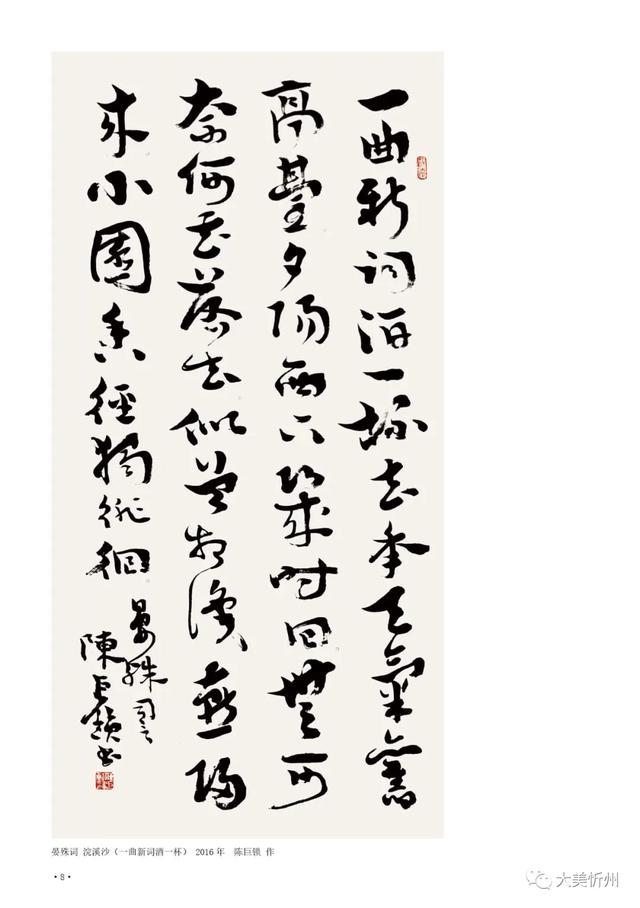 一曲新詞酒一杯去年天氣舊
亭臺夕陽西下幾時回無可
奈何花落去似曾相識燕歸
來小園香徑獨徘徊
晏殊詞
陳巨鎖書
晏殊词 浣溪沙（一曲新词酒一杯） 2016年 陈巨锁 作
·8·
大美忻州